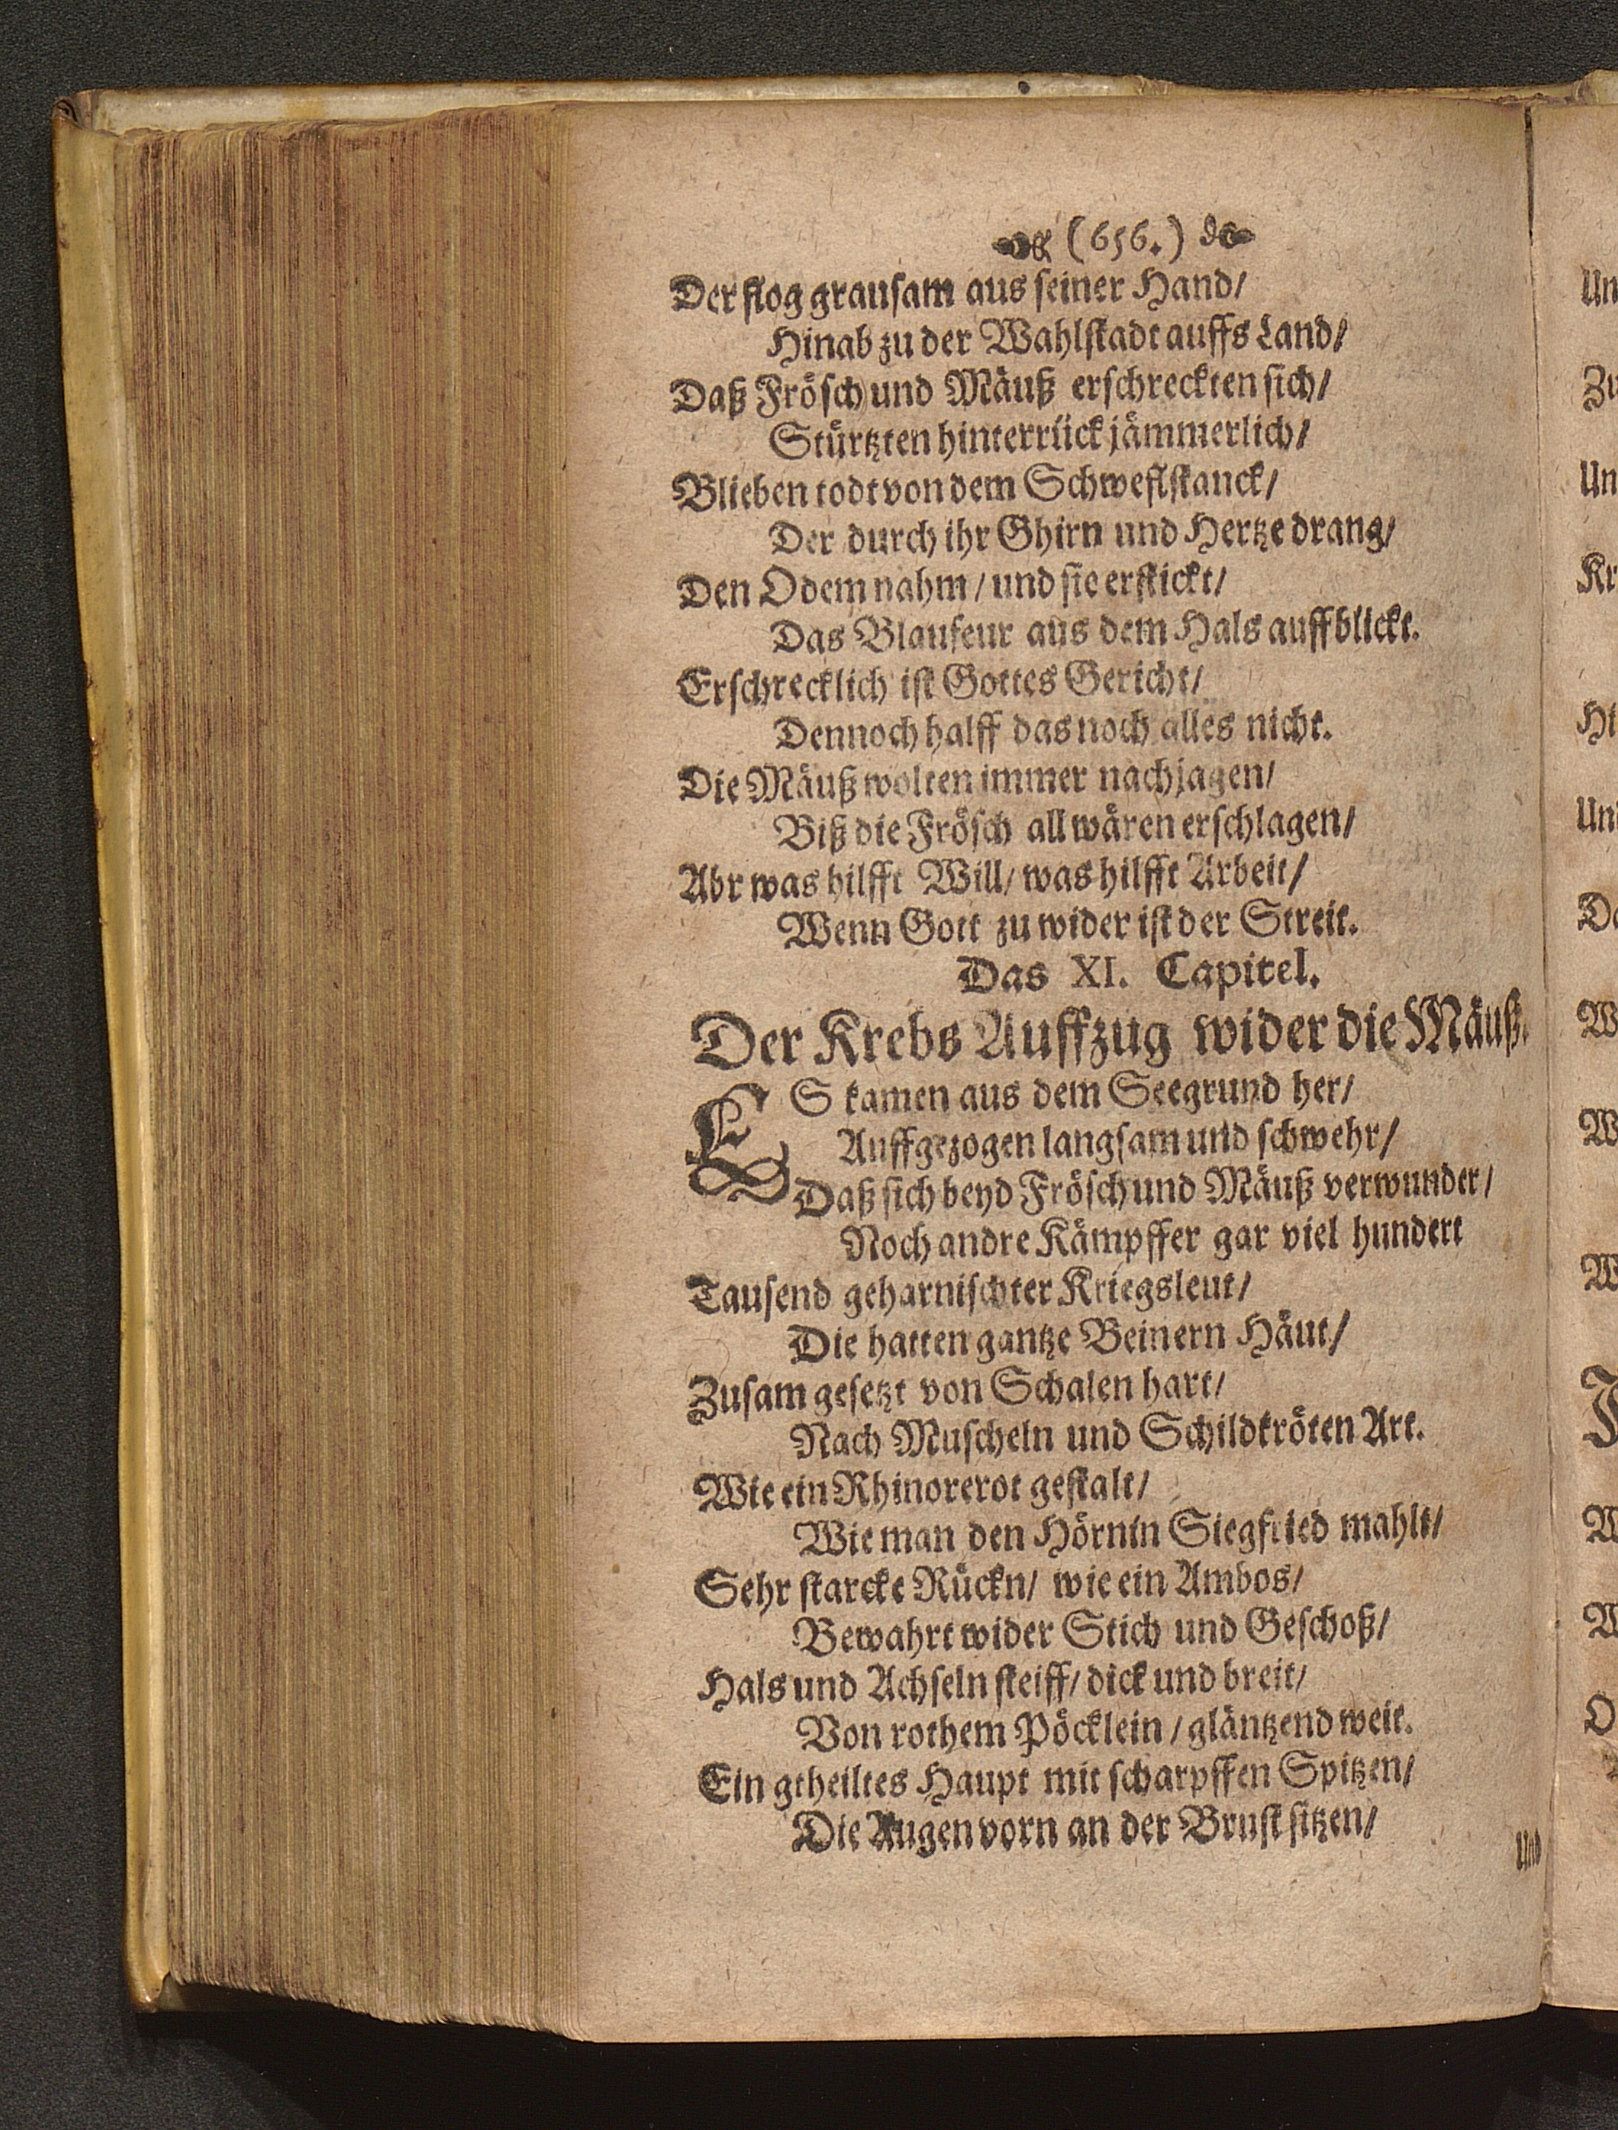 (656.)
Der flog grausam aus seiner Hand/
Hinab zu der Wahlstadt auffs Land/
Daß Frösch und Mäuß erschreckten sich/
Stürtzten hinterrück jämmerlich/
Blieben todt von dem Schweflstanck/
Der durch ihr Ghirn und Hertze drang/
Den Odem nahm/ und sie erstickt/
Das Blaufeur aus dem Hals auffblickt.
Erschrecklich ist Gottes Gericht/
Dennoch halff das noch alles nicht.
Die Mäuß wolten immer nachjagen/
Biß die Frösch all wären erschlagen/
Abr was hilfft Will/ was hilfft Arbeit/
Wenn Gott zu wider ist der Streit.
Das XI. Capitel.
Der Krebs Auffzug wider die Mäuß.
ES kamen aus dem Seegrund her/
Auffgezogen langsam und schwehr/
Daß sich beyd Frösch und Mäuß verwunder/
Noch andre Kämpffer gar viel hundert
Tausend geharnischter Kriegsleut/
Die hatten gantze Beinern Häut/
Zusam gesetzt von Schalen hart/
Nach Muscheln und Schildkröten Art.
Wie ein Rhinorerot gestalt/
Wie man den Hörnin Siegfried mahlt/
Sehr starcke Rückn/ wie ein Ambos/
Bewahrt wider Stich und Geschoß/
Hals und Achseln steiff/ dick und breit/
Von rothem Pöcklein/ gläntzend weit.
Ein gtheiltes Haupt mit scharpffen Spitzen/
Die Augen vorn an der Brust sitzen/
Und